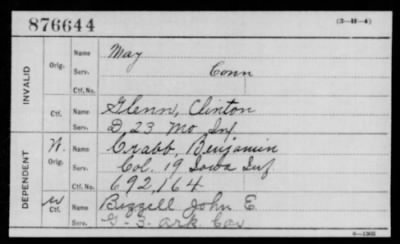 876644 (3-H-4)
INVALID
Orig. Name May
Serv. Conn
Ctf. No.
Ctf. Name Glenn, Clinton
Serv. D, 23 Mo Inf
DEPENDENT
W. Orig. Name Crabb, Benjamin
Serv. Col. 19 Iowa Inf
Ctf. No. 692,164
W Ctf. Name Bizzell John E.
Serv. G-3-Ark Cav